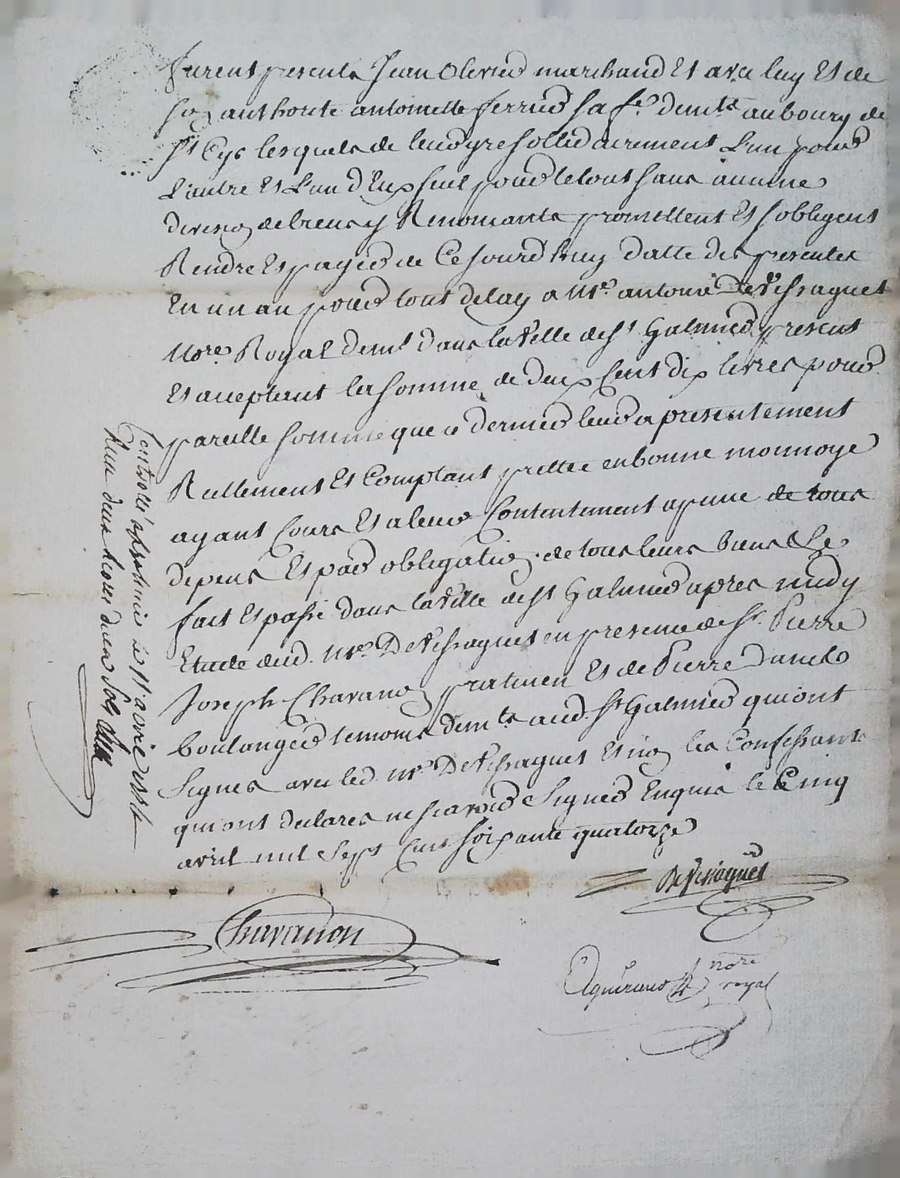 furent presents Jean Olivier marchand Et avec luy Et de
son authorité antoinette ferrier sa fe. demts. au bourg de
St Cyr lesquels de leur gre sollidairement L'un pour
L'autre Et L'un d'Eux seul pour le tout sans aucune
division de biens y Renonceants promettent Et sobligent
Rendre Et payer de Ce Jourd huy datte des presentes
En un an pour tout delay a Mre. antoine
Nore. Royal demt. dans la ville de st. Galmier present
Et acceptant la somme de deux Cent dix livres pour
pareille somme que ce dernier leur a presentement
Reellement Et Comptant prettée en bonne monnoye
ayant Cours Et a leur Contentement a peine de tous
depens Et par obligation de tous leurs biens &c
fait Et passé dans la ville de st Galmier apres midy
Etude dud. Mre. en presence de sr. Pierre
Joseph Chavanon praticien Et de Pierre
boulanger temoins demts. aud. St Galmier qui ont
Signes avec led. Mre. Et non les Confessants
qui ont declares ne scavoir Signer Enquis le Cinq
avril mil Sept Cent soixante quatorze
Chavanon
nore
royal
Controllé a st galmier le 11e. avril 1774